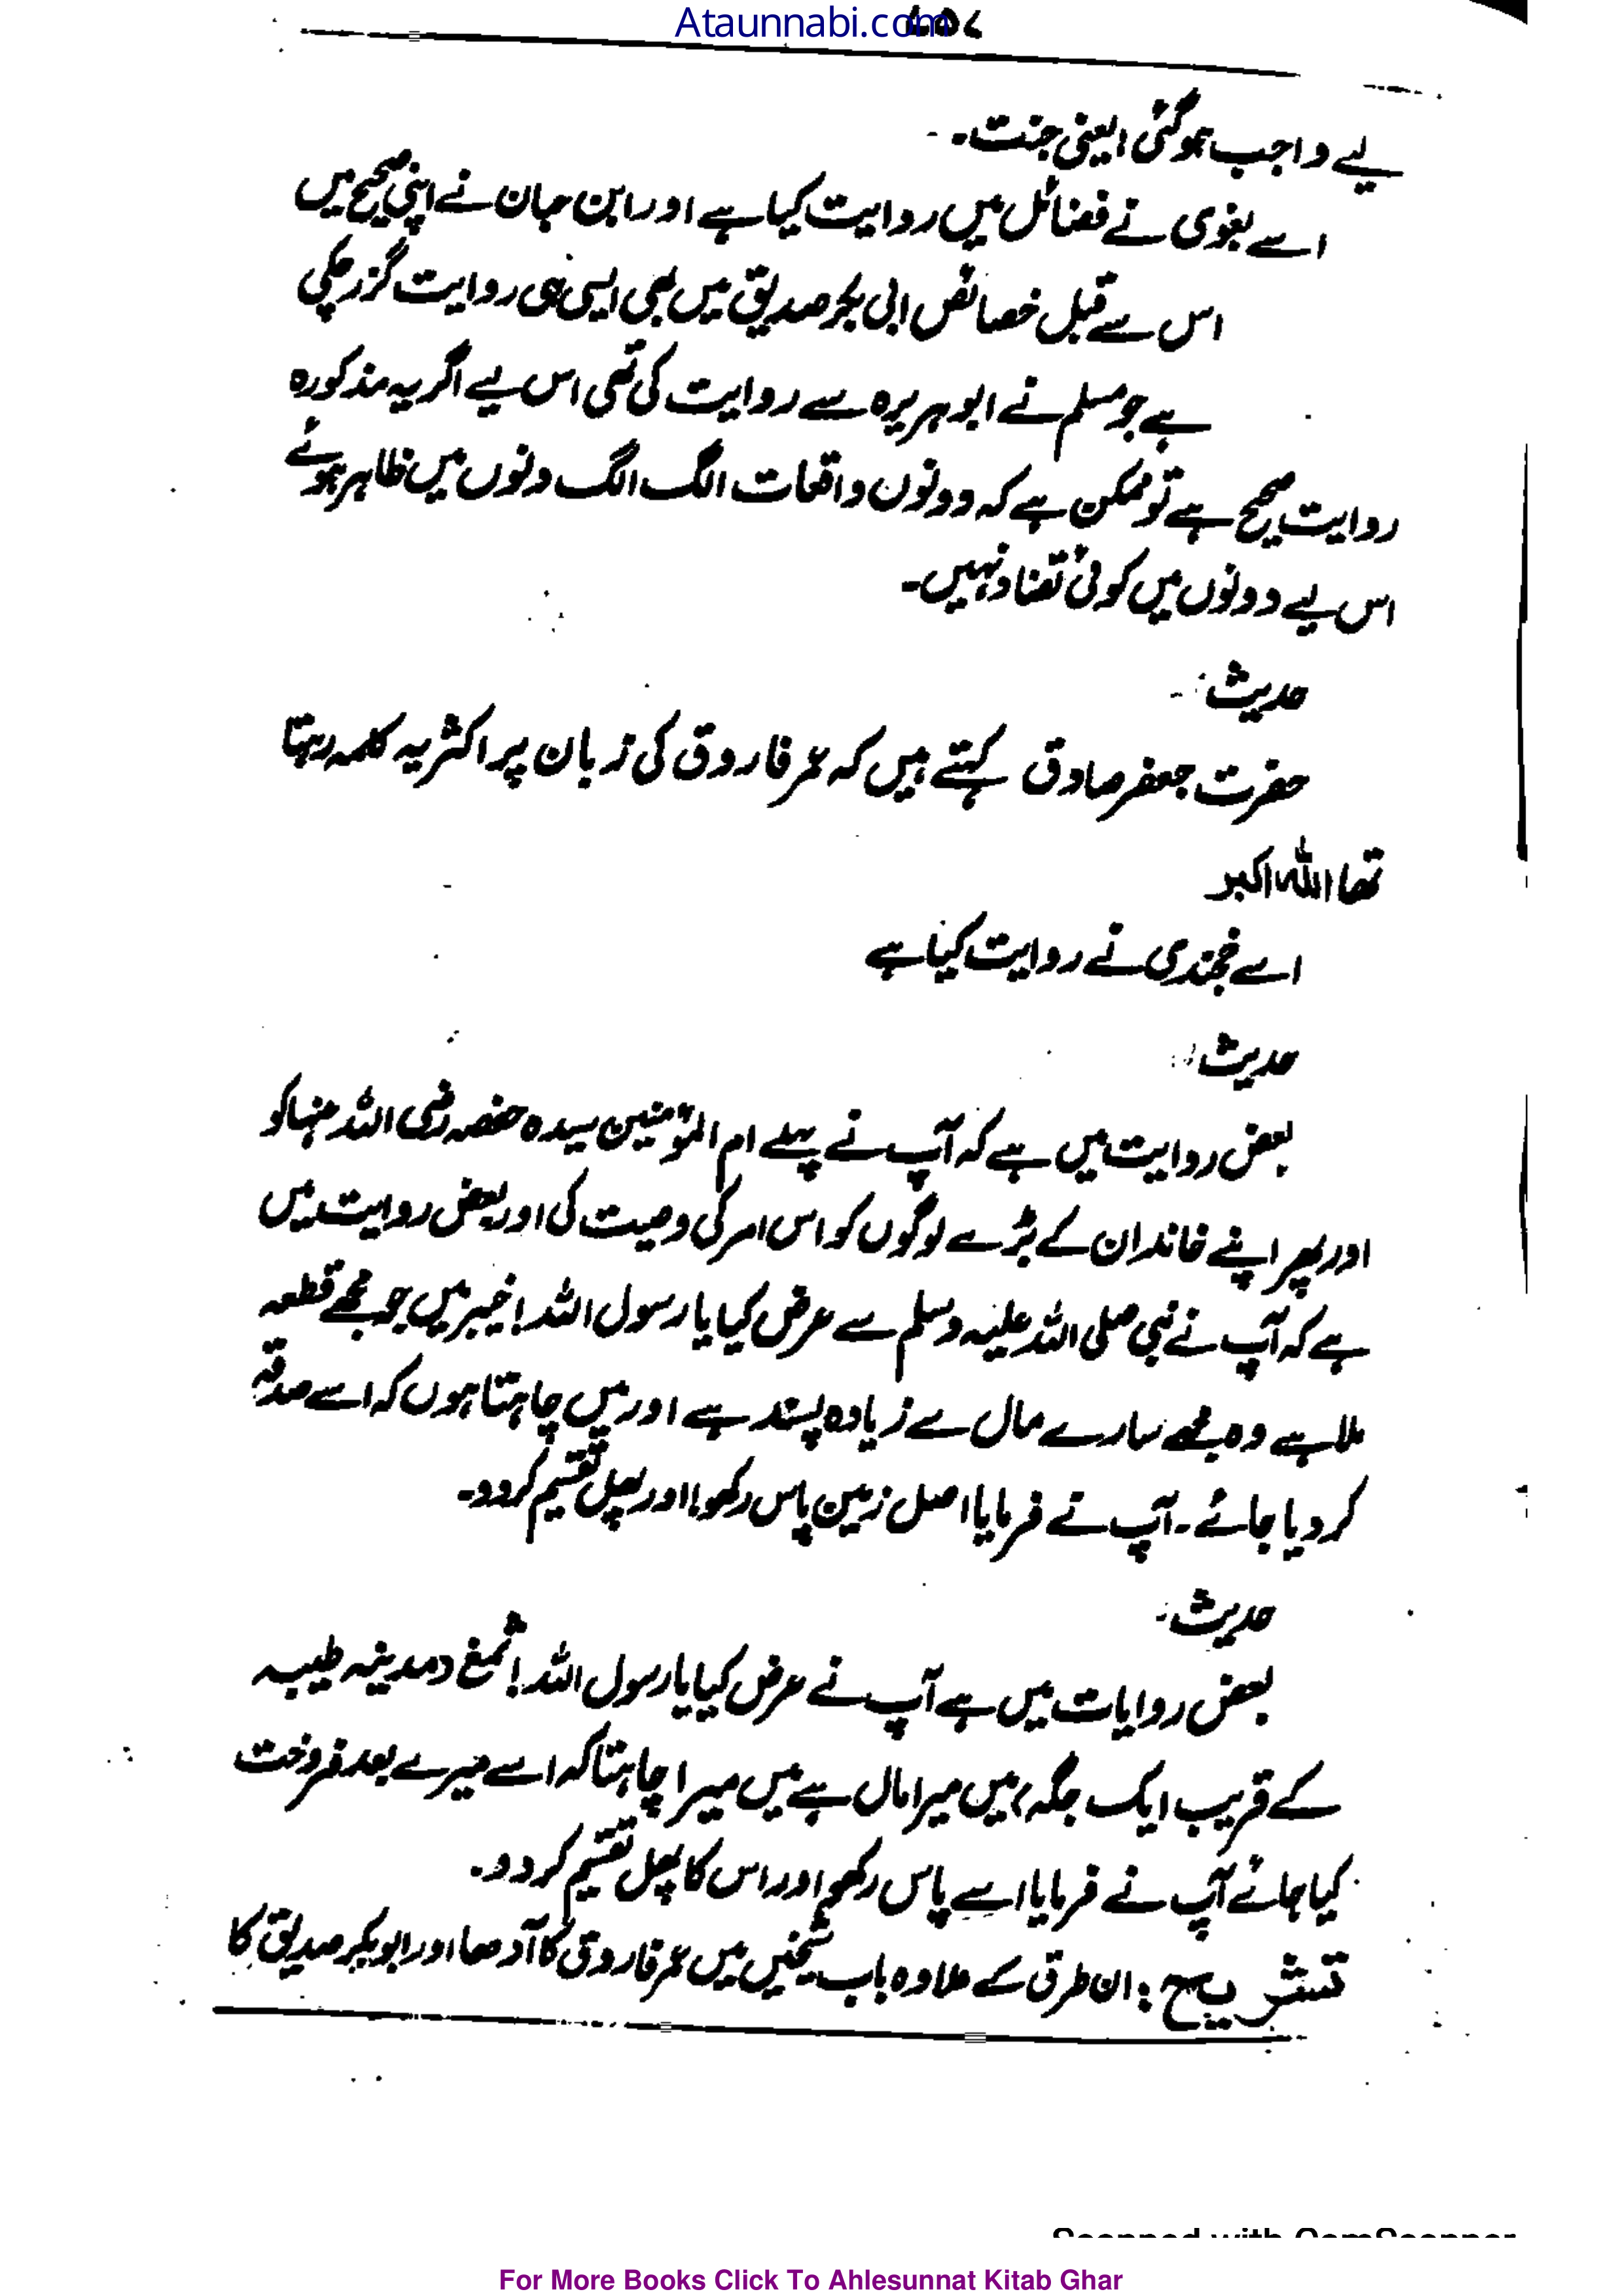 Ataunnabi.com
لیے واجب ہوگئی (یعنی جنت۔
اسے بغوی نے فضائل میں روایت کیا ہے اور ابن حبان نے اپنی صحیح میں
اس سے قبل خصائص ابی بکر صدیق میں بھی ایسی ہی روایت گزر چکی
ہے جو مسلم نے ابوہریرہ سے روایت کی تھی اس لیے اگر یہ مذکورہ
روایت صحیح ہے تو ممکن ہے کہ دونوں واقعات الگ الگ دنوں میں ظاہر ہوئے
اس لیے دونوں میں کوئی تضاد نہیں۔
حدیث:-
حضرت جعفر صادق کہتے ہیں کہ عمر فاروق کی زبان پر اکثر یہ کلمہ رہتا
تھا اللہ اکبر
اسے خجندی نے روایت کیا ہے
حدیث:
بعض روایت میں ہے کہ آپ نے پہلے ام المؤمنین سیدہ حفصہ رضی اللہ عنہا کو
اور پھر اپنے خاندان کے بڑے لوگوں کو اس امر کی وصیت کی اور بعض روایت میں
ہے کہ آپ نے نبی صلی اللہ علیہ وسلم سے عرض کیا یا رسول اللہ! خیبر میں جو مجھے قطعہ
ملا ہے وہ مجھے سارے مال سے زیادہ پسند ہے اور میں چاہتا ہوں کہ اسے صدقہ
کردیا جائے۔ آپ نے فرمایا اصل زمین پاس رکھو، اور پھل تقسیم کردو۔
حدیث:
بعض روایات میں ہے آپ نے عرض کیا یا رسول اللہ! ثمغ (مدینہ طیبہ
کے قریب ایک جگہ) میں میرا مال ہے میں میرا چاہتا کہ اسے میرے بعد فروخت
کیا جائے آپ نے فرمایا اسے پاس رکھو اور اس کا پھل تقسیم کردو۔
تشریح: ان طرق کے علاوہ باب شیخین میں عمر فاروق کا آدھا اور ابوبکر صدیق کا
Scanned with CamScanner
For More Books Click To Ahlesunnat Kitab Ghar